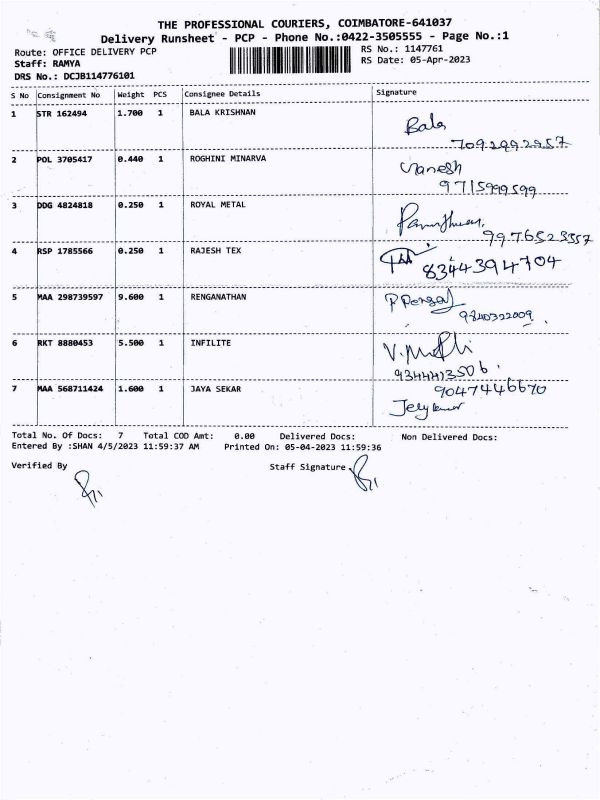 THE PROFESSIONAL COURIERS, COIMBATORE-641037
Delivery Runsheet - PCP - Phone No.:0422-3505555 - Page No.:1
Route: OFFICE DELIVERY PCP
RS No.: 1147761
Staff: RAMYA
RS Date: 05-Apr-2023
DRS No.: DCJB114776101
S No Consignment No Weight PCS Consignee Details Signature
1 STR 162494 1.700 1 BALA KRISHNAN
Bala
7092992957
2 POL 3705417 0.440 1 ROGHINI MINARVA
Ganesh
9715999599
3 DDG 4824818 0.250 1 ROYAL METAL
9976523357
4 RSP 1785566 0.250 1 RAJESH TEX
8344394704
5 MAA 298739597 9.600 1 RENGANATHAN
9840322009
6 RKT 8880453 5.500 1 INFILITE
9344413506
7 MAA 568711424 1.600 1 JAYA SEKAR
9047446670
Total No. Of Docs: 7 Total COD Amt: 0.00 Delivered Docs: Non Delivered Docs:
Entered By :SHAN 4/5/2023 11:59:37 AM Printed On: 05-04-2023 11:59:36
Verified By Staff Signature